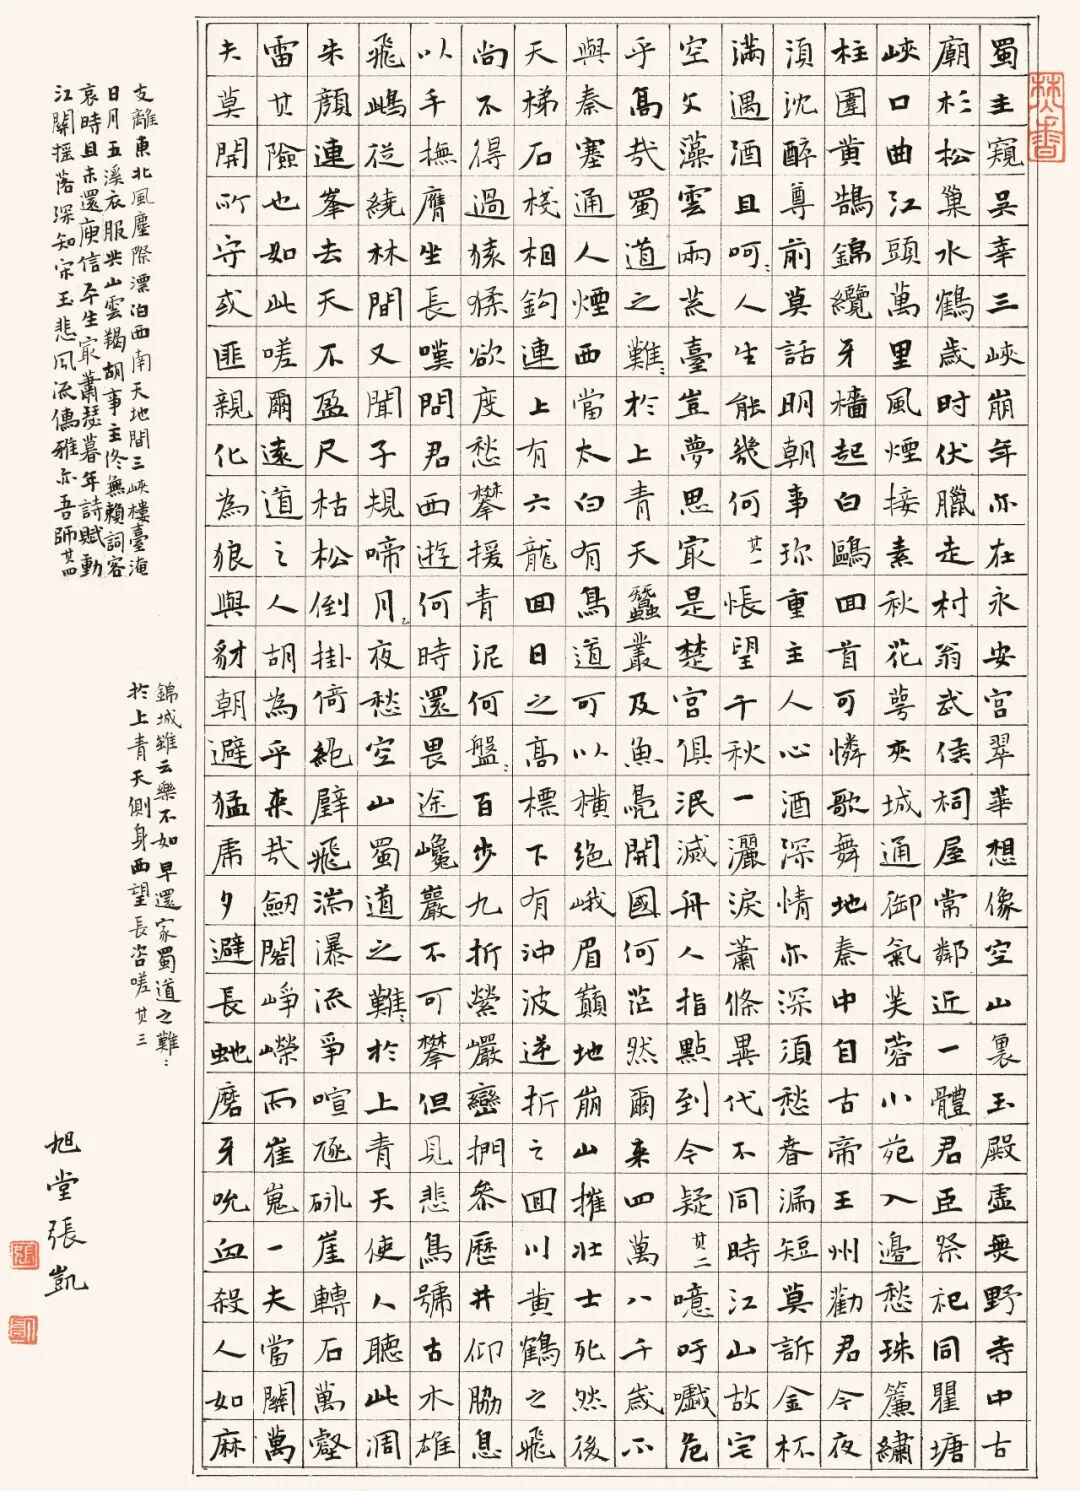 蜀主窺吳幸三峽崩年亦在永安宮翠華想像空山裏玉殿虛無野寺中古
廟杉松巢水鶴歲時伏臘走村翁武侯祠屋常鄰近一體君臣祭祀同瞿塘
峽口曲江頭萬里風煙接素秋花萼夾城通御氣芙蓉小苑入邊愁珠簾繡
柱圍黄鵠錦纜牙檣起白鷗回首可憐歌舞地秦中自古帝王州勸君今夜
須沈醉尊前莫話明朝事珎重主人心酒深情亦深須愁春漏短莫訴金杯
滿遇酒且呵:人生能幾何其一悵望千秋一灑淚蕭條異代不同時江山故宅
空文藻雲雨荒臺豈夢思冣是楚宮俱泯滅舟人指點到今疑其二噫吁嚱危
乎高哉蜀道之難:於上青天蠶叢及魚鳧開國何茫然爾来四萬八千歲不
與秦塞通人煙西當太白有鳥道可以橫絶峨眉巔地崩山摧壯士死然後
天梯石棧相鈎連上有六龍回日之高標下有沖波逆折之回川黄鶴之飛
尚不得過猿猱欲度愁攀援青泥何盤:百步九折縈巖巒捫參歷井仰脇息
以手撫膺坐長嘆問君西遊何時還畏途巉巖不可攀但見悲鳥號古木雄
飛雌從繞林間又聞子規啼月夜愁空山蜀道之難:於上青天使人聽此凋
朱顏連峯去天不盈尺枯松倒掛倚絕壁飛湍瀑流爭喧豗砯崖轉石萬壑
雷其險也如此嗟爾遠道之人胡為乎来哉劒閣崢嶸而崔嵬一夫當關萬
夫莫開所守或匪親化為狼與豺朝避猛虎夕避長虵磨牙吮血殺人如麻
錦城雖云樂不如早還家蜀道之難:
於上青天側身西望長咨嗟其三
支離東北風塵際漂泊西南天地間三峽樓臺淹
日月五溪衣服共山雲羯胡事主終無賴詞客
哀時且未還庾信平生冣蕭瑟暮年詩賦動
江關搖落深知宋玉悲風流儒雅亦吾師其四
旭堂張凱